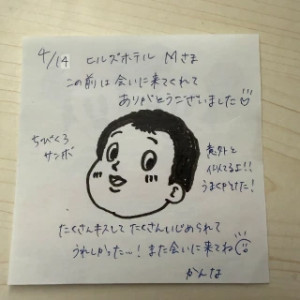 4/14 ヒルズホテル Mさま
この前は会いに来てくれて
ありがとうございました
ちびくろ
サンボ
意外と
似てるよ!!
うまくかけた!
たくさんキスして たくさんいじめられて
うれしかったー! また会いに来てね
かんな